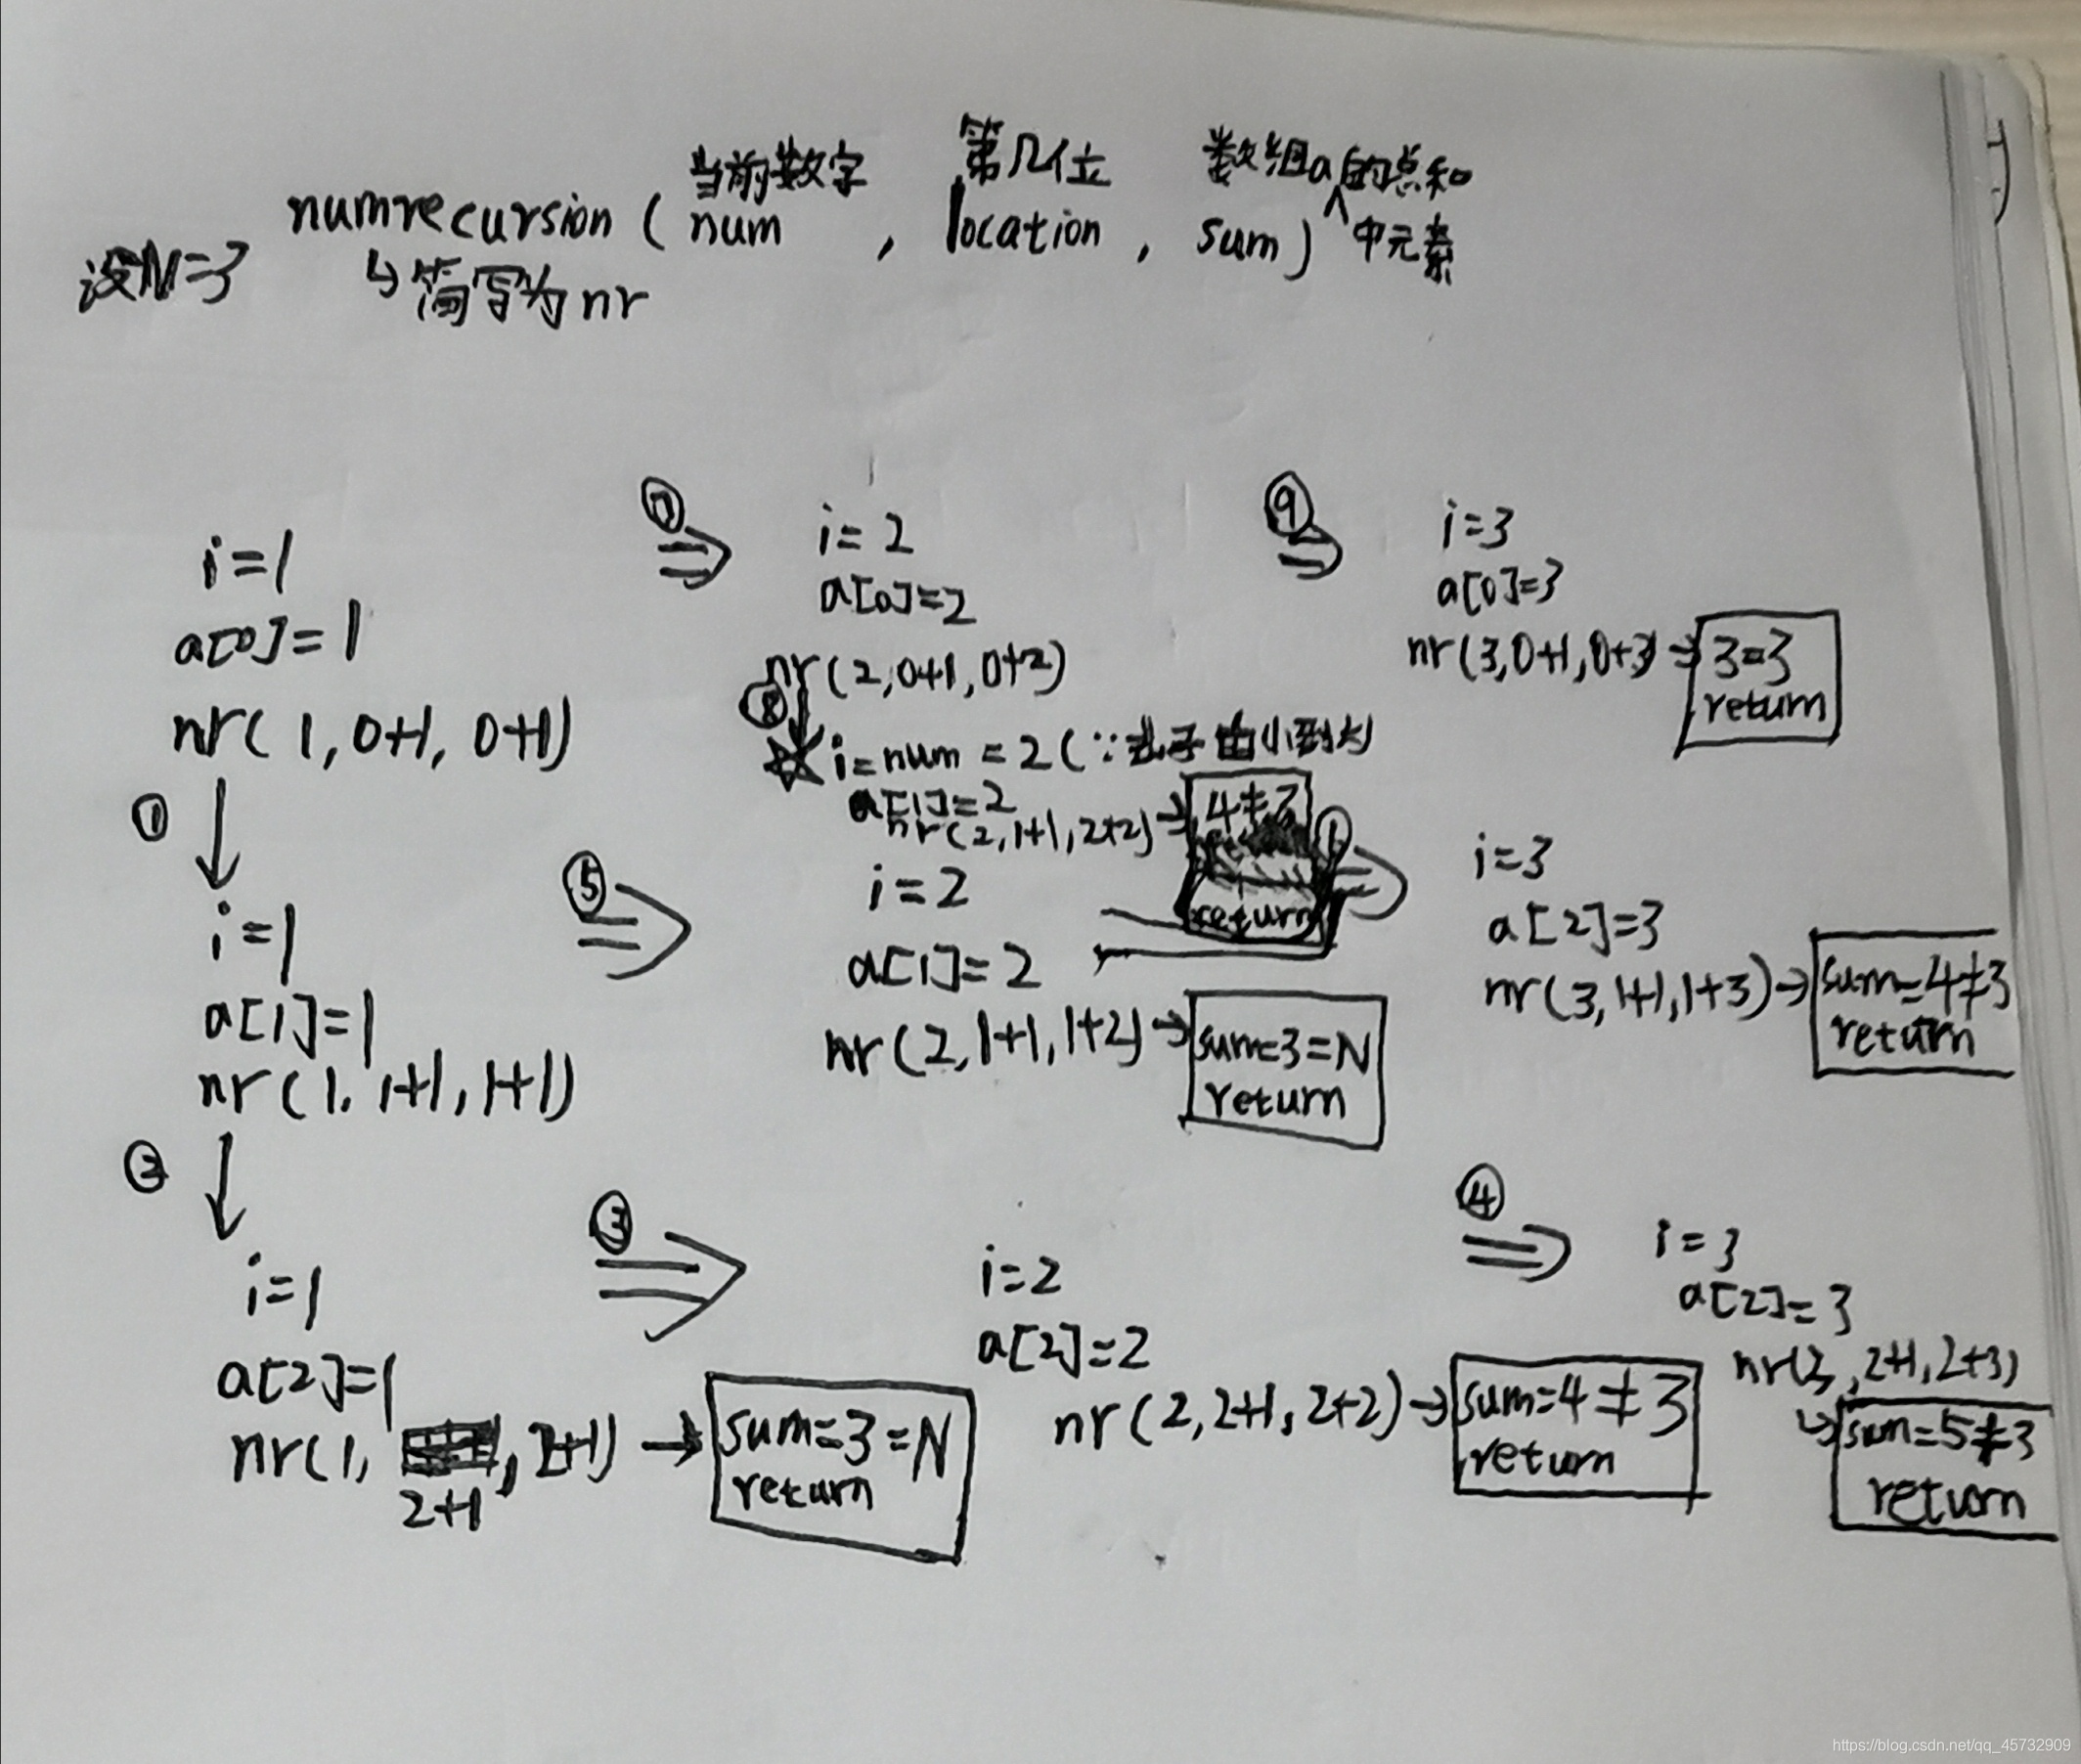 当前数字 第几位 数组a的总和
numrecursion ( num , location , sum ) ^中元素
设N=3
↳简写为nr
i=1
a[0]=1
nr( 1, 0+1, 0+1)
① ↓
i=1
a[1]=1
nr(1, 1+1, 1+1)
② ↓
i=1
a[2]=1
nr(1, , 2+1) → sum=3=N
2+1
return
⑦ ⇒
i=2
a[0]=2
nr(2, 0+1, 0+2)
⑧ ↓
☆ i=num=2 (∵式子由小到大
a[1]=2
nr(2, 1+1, 2+2) → 4≠3
return
⑨ ⇒
i=3
a[0]=3
nr(3, 0+1, 0+3) → 3=3
return
⑤ ⇒
i=2
a[1]=2
nr(2, 1+1, 1+2) → sum=3=N
return
⇒
i=3
a[2]=3
nr(3, 1+1, 1+3) → sum=4≠3
return
③ ⇒
i=2
a[2]=2
nr(2, 2+1, 2+2) → sum=4≠3
return
④ ⇒
i=3
a[2]=3
nr(3, 2+1, 2+3)
↳ sum=5≠3
return
https://blog.csdn.net/qq_45732909